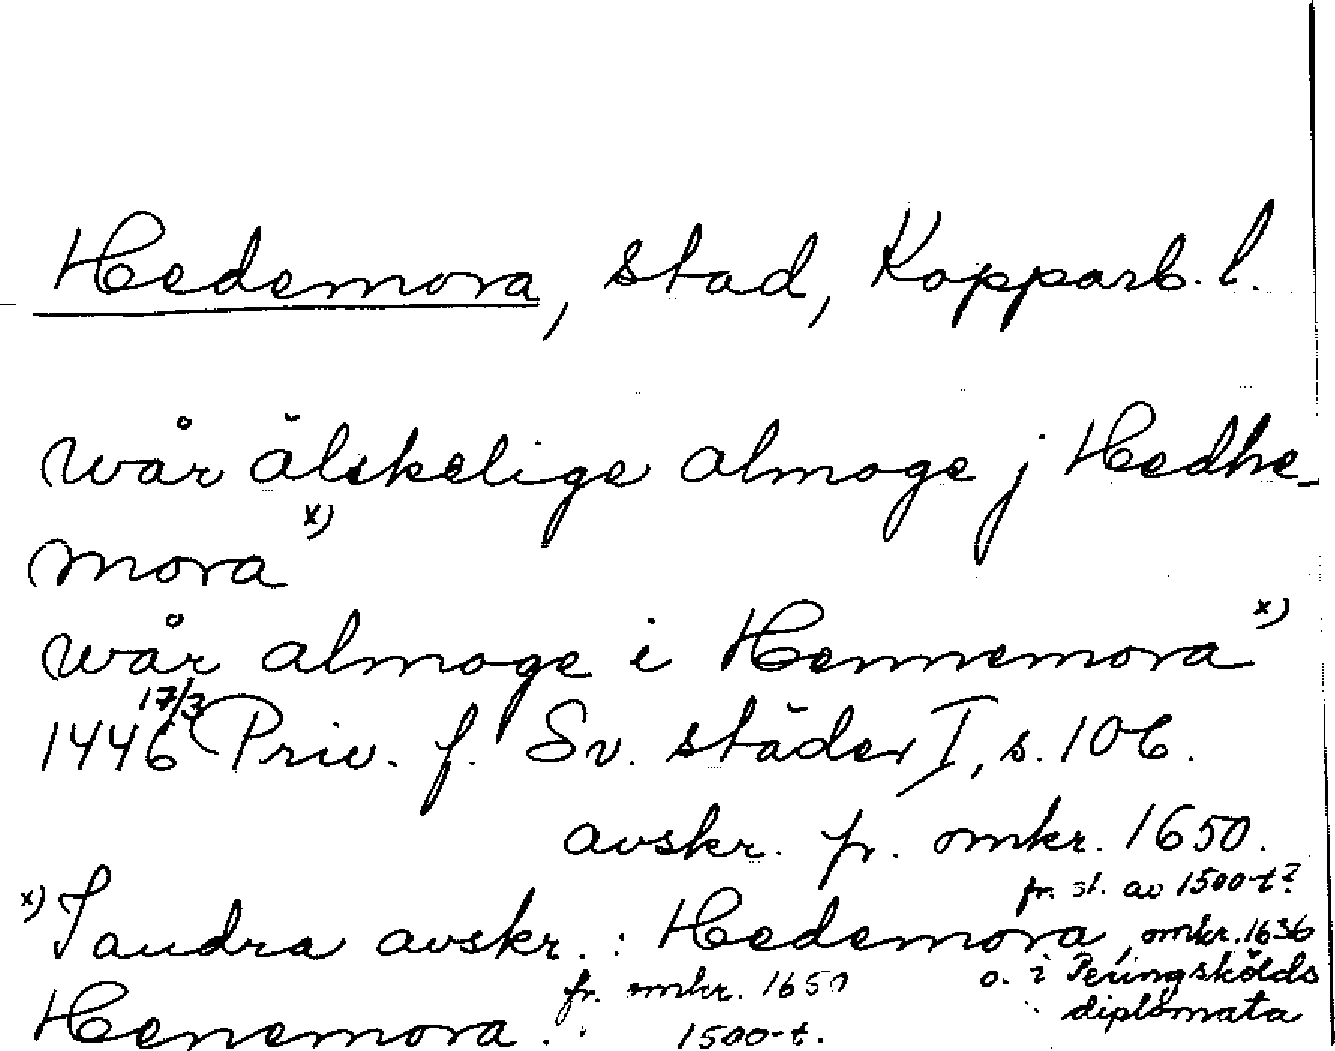 Hedemora, stad, Kopparb. l.
wår älskelige almoge j Hedhe-
mora x)
wår almoge i Hennemora x)
1446 17/3 Priv. f. Sv. städer I, s. 106.
avskr. fr. omkr. 1650.
fr. sl. av 1500-t?
x) I andra avskr.: Hedemora, omkr. 1636
o. i Peringskölds
diplomata
fr. omkr. 1650
Henemora.
1500-t.